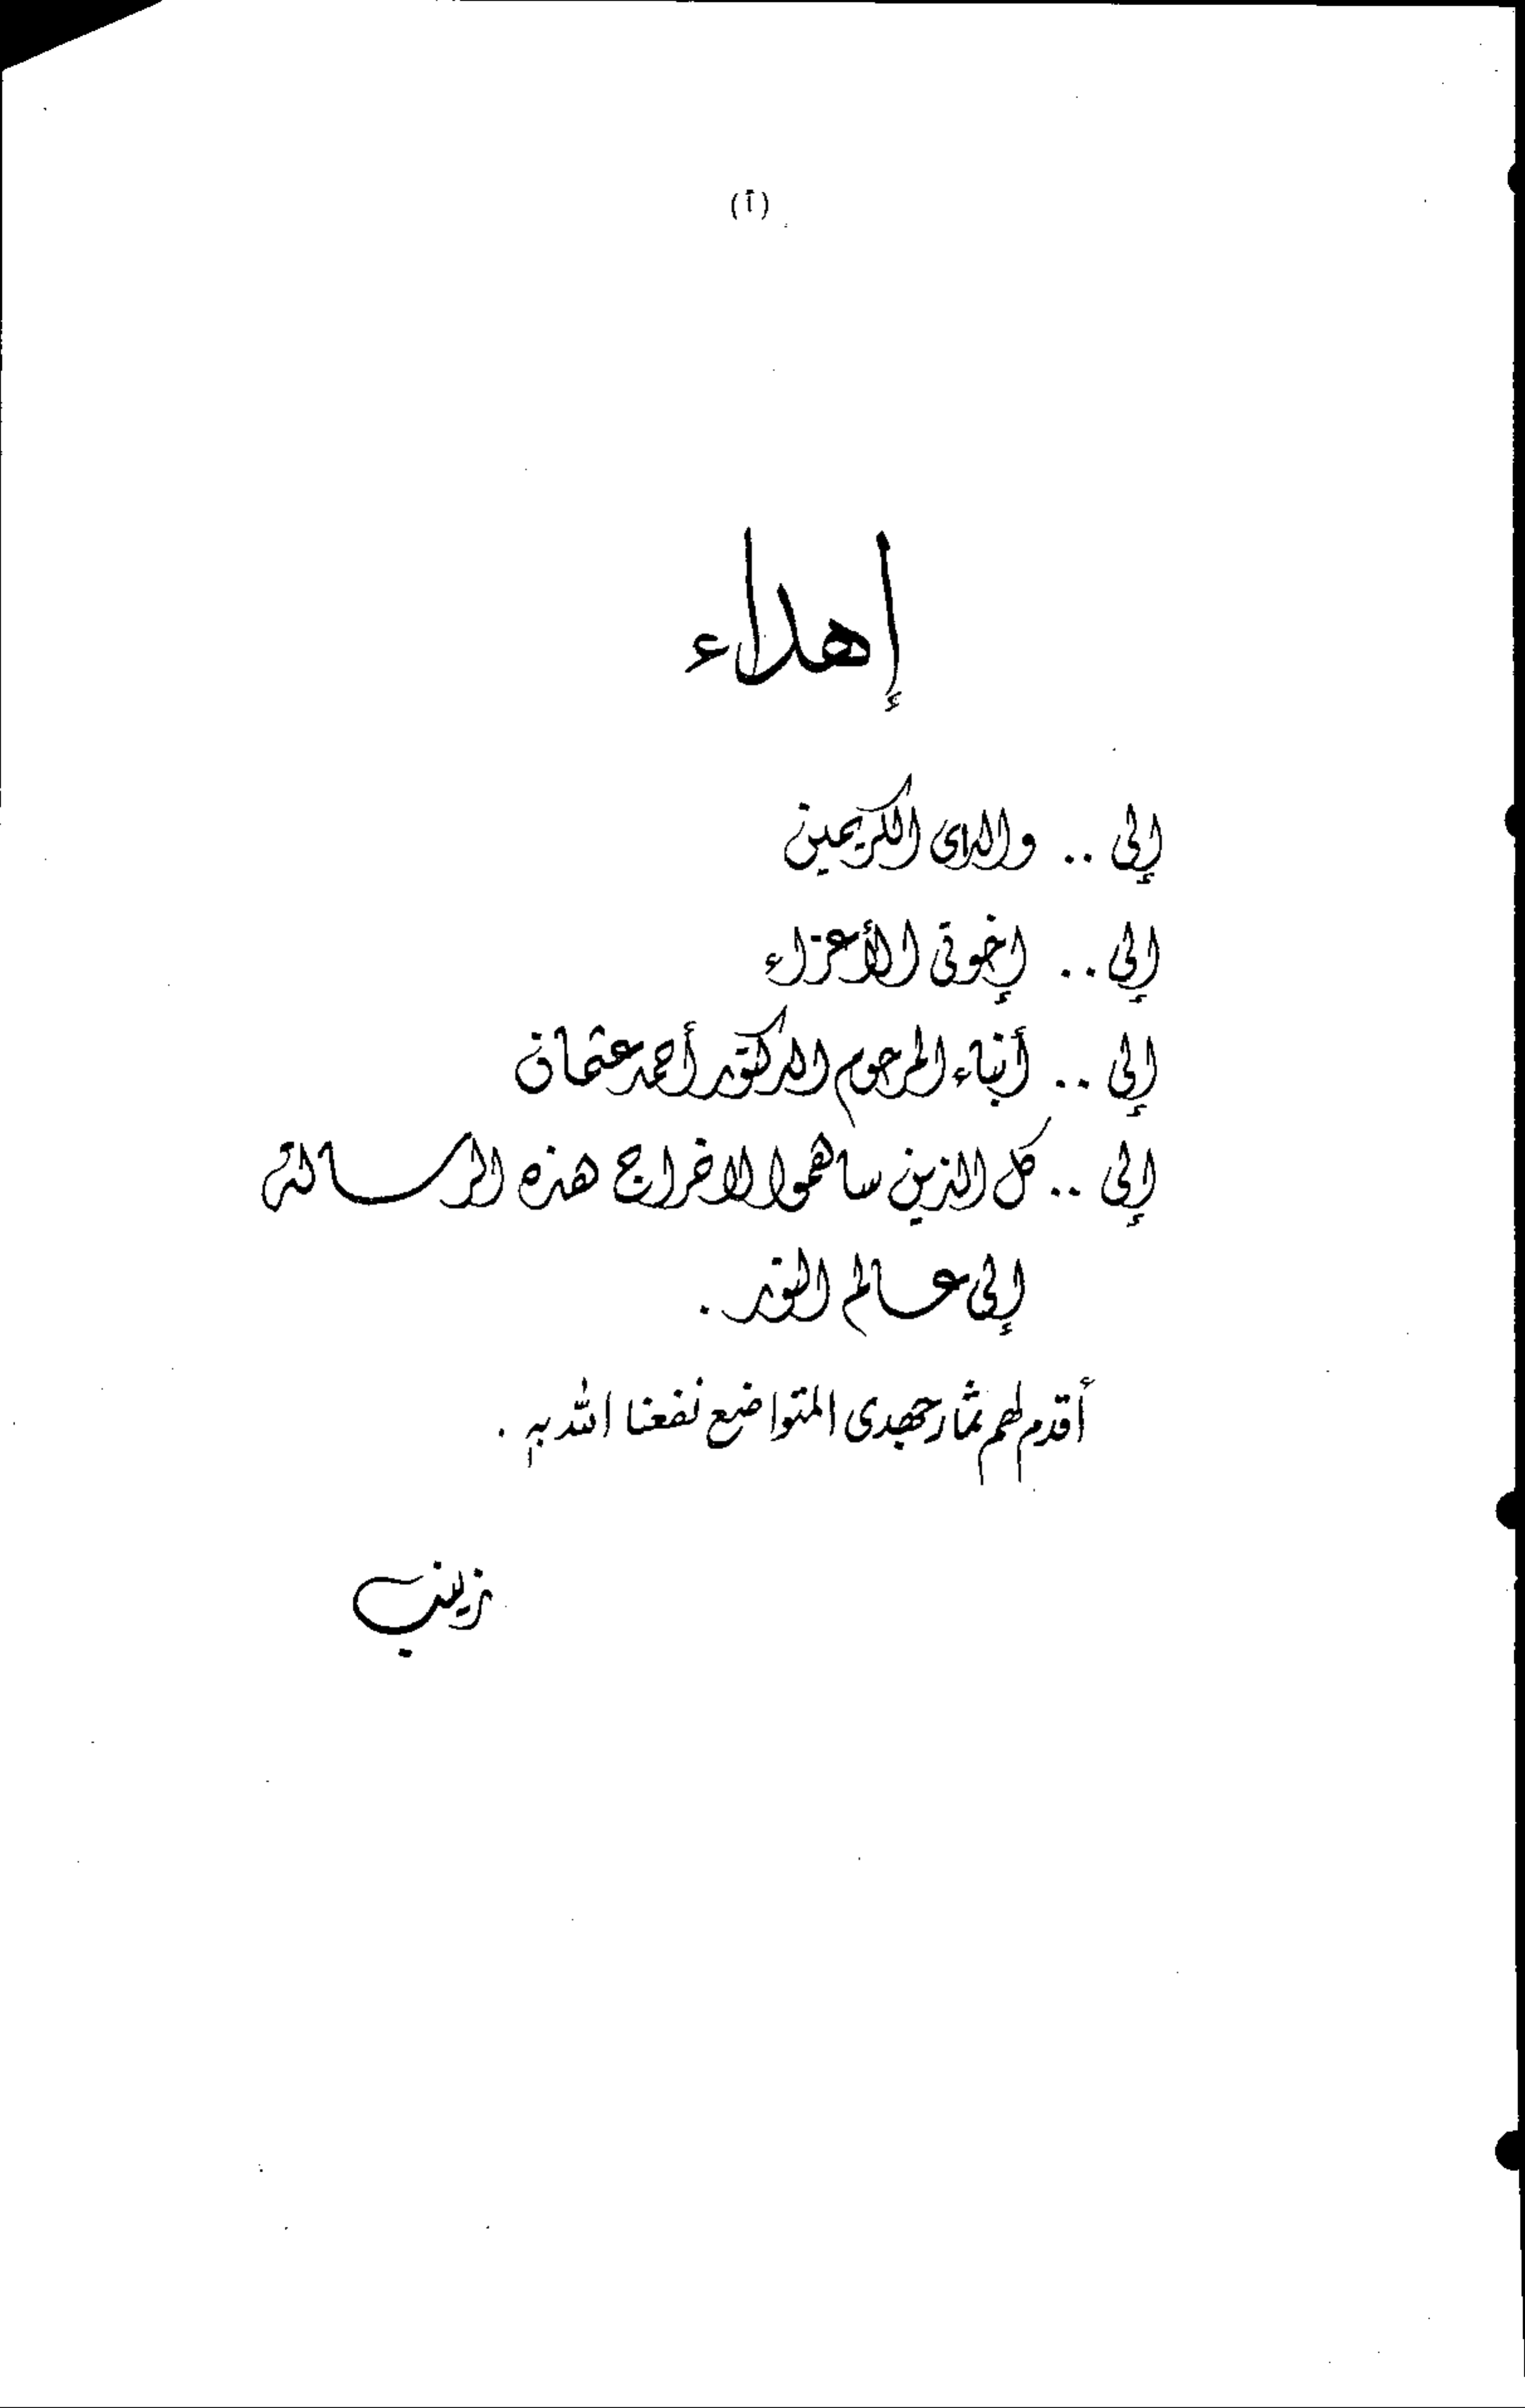 (أ)
إهداء
إلى .. والدى الكريمين
إلى .. إخوتى الأعزاء
إلى .. أبناء المرحوم الدكتور أحمد عثمان
إلى .. كل الذين ساهموا لاخراج هذه الرسالة
إلى عالم النور .
أقدم لهم ثمار جهدى المتواضع نفعنا الله به .
زينب